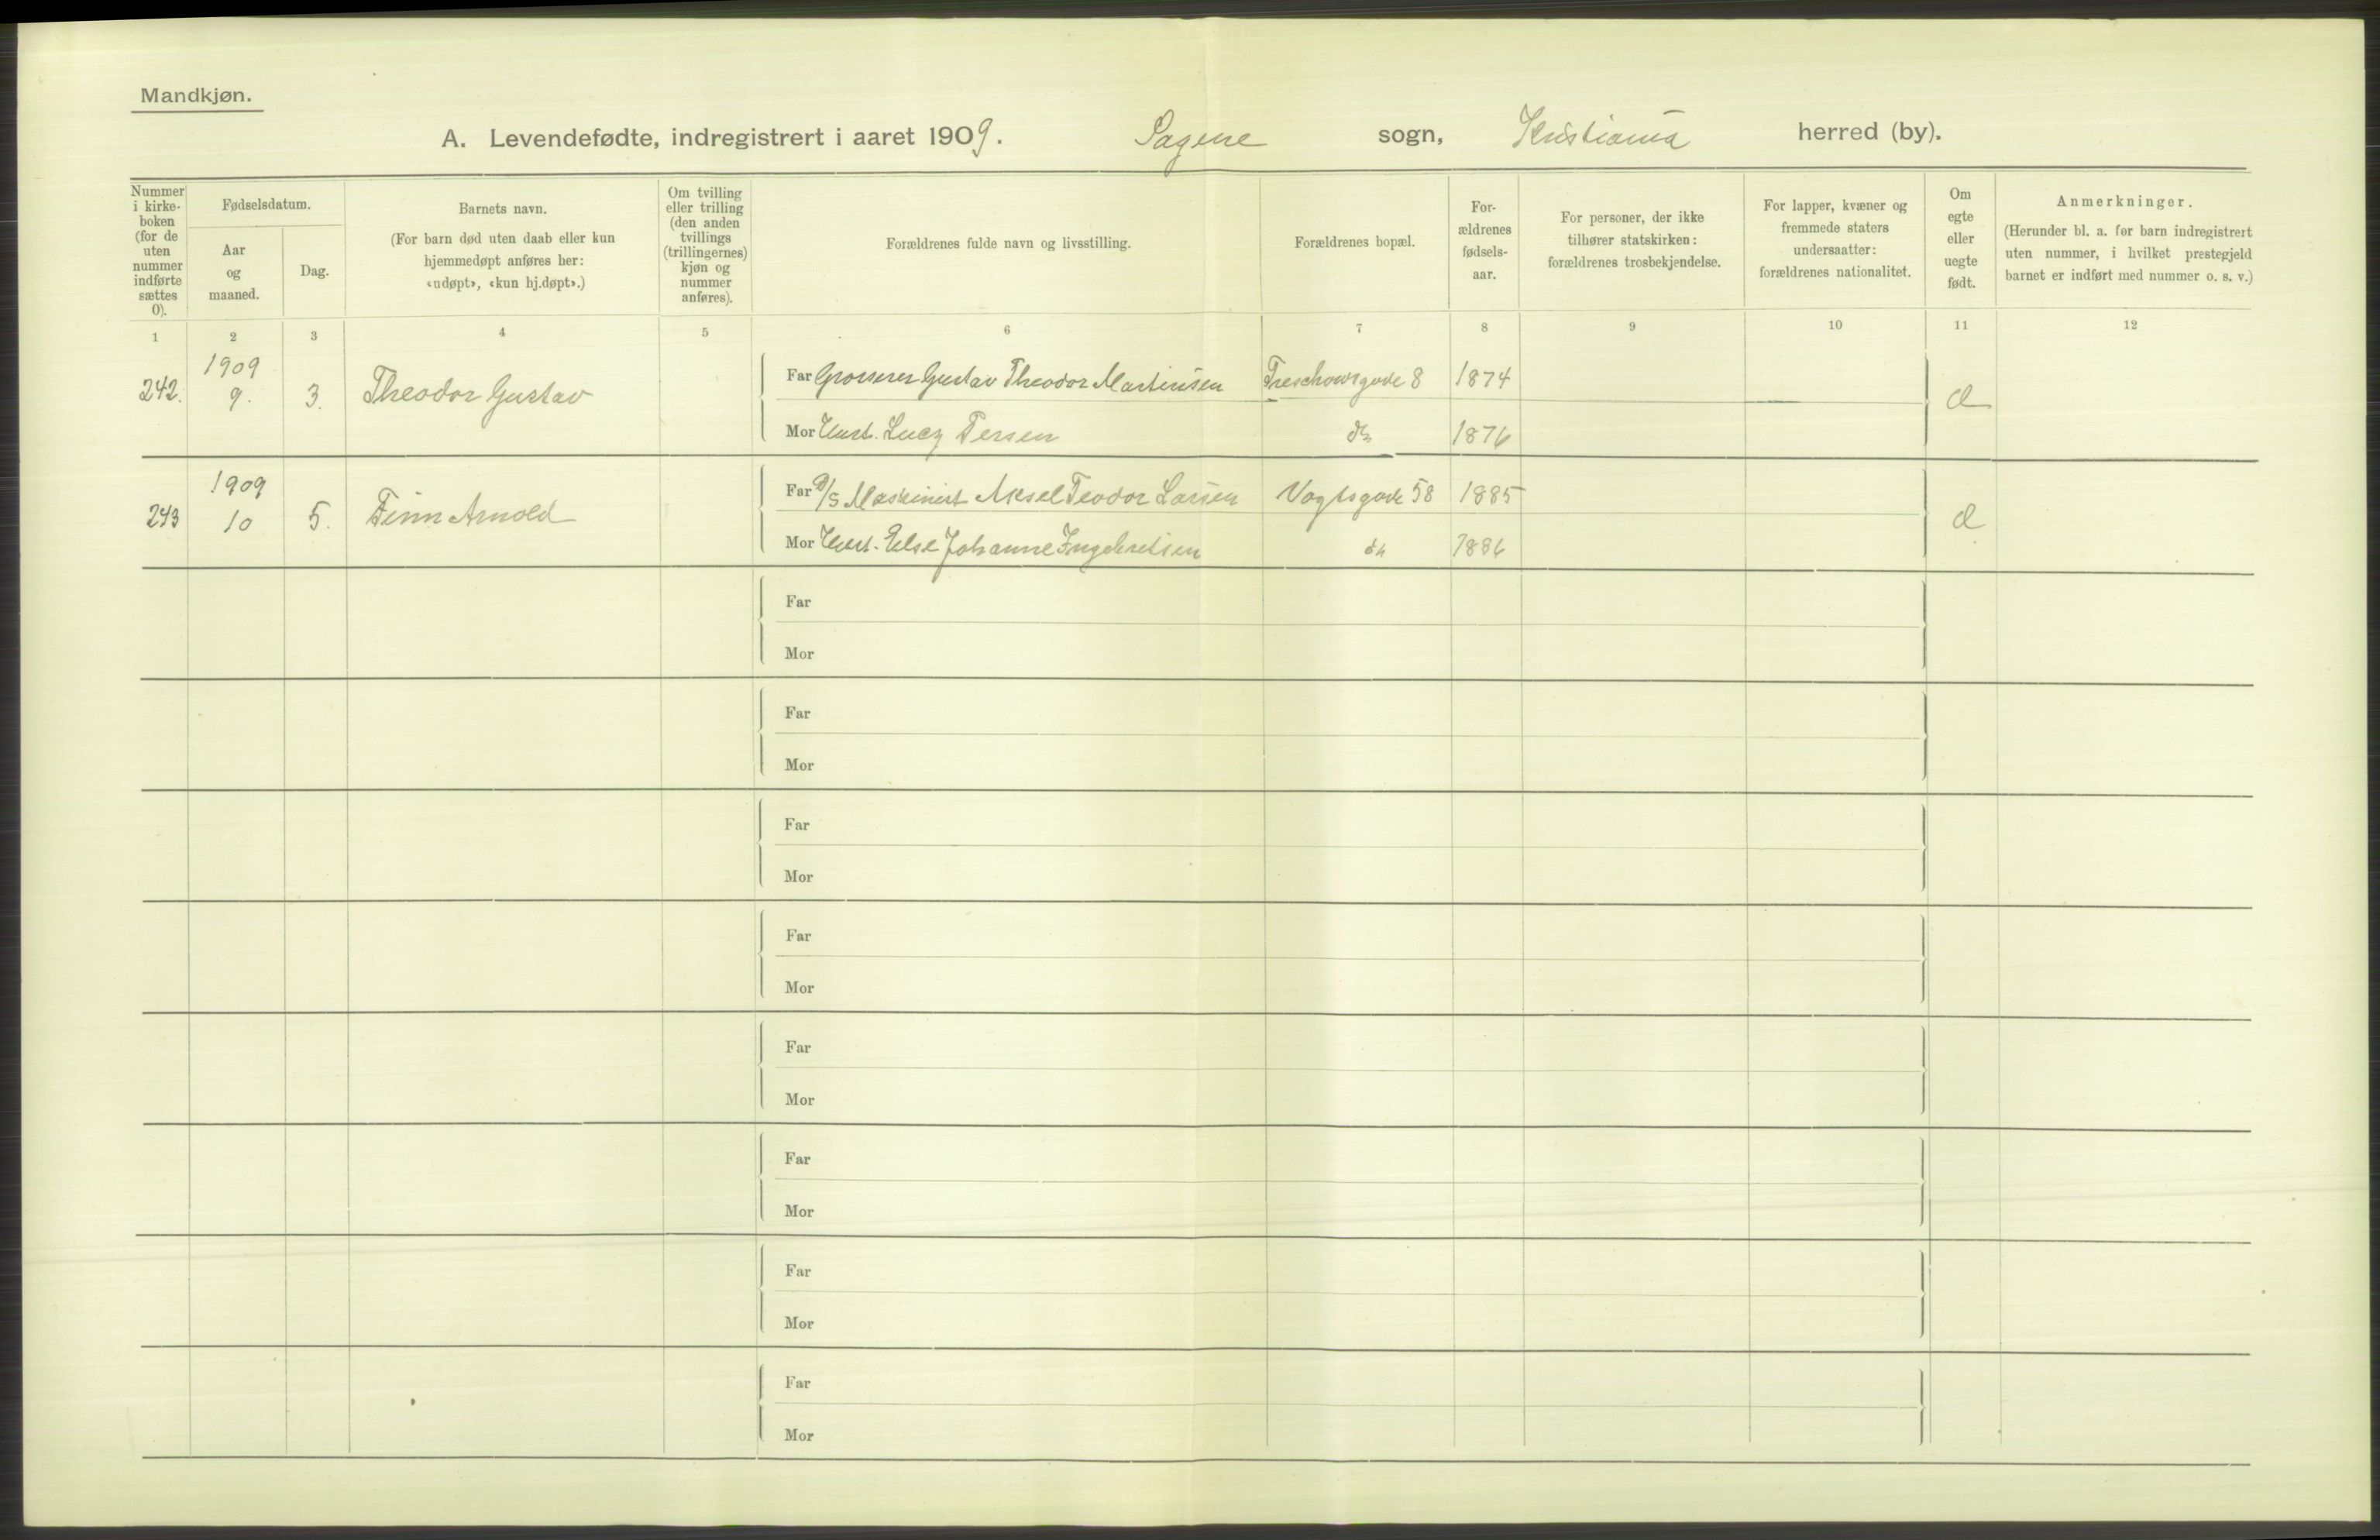 Mandkjøn.
A. Levendefødte, indregistrert i aaret 1909. Sagene sogn, Kristiania herred (by).
Nummer i kirke-boken (for de uten nummer indførte sættes 0).
Fødselsdatum.
Aar og maaned.
Dag.
Barnets navn.
(For barn død uten daab eller kun hjemmedøpt anføres her: «udøpt», «kun hj.døpt».)
Om tvilling eller trilling (den anden tvillings (trillingernes) kjøn og nummer anføres).
Forældrenes fulde navn og livsstilling.
Forældrenes bopæl.
For-ældrenes fødsels-aar.
For personer, der ikke tilhører statskirken: forældrenes trosbekjendelse.
For lapper, kvæner og fremmede staters undersaatter: forældrenes nationalitet.
Om egte eller uegte født.
Anmerkninger.
(Herunder bl. a. for barn indregistrert uten nummer, i hvilket prestegjeld barnet er indført med nummer o. s. v.)
1 2 3 4 5 6 7 8 9 10 11 12
1909
242. 9. 3. Theodor Gustav
Far Grosserer Gustav Theodor Martinsen Treschowsgade 8 1874
Mor Hust. Lucy Persen do 1876
1909
243 10 5. Finn Arnold
Far D/S Maskinist Aksel Teodor Larsen Vogtsgade 58 1885
Mor Hust. Else Johanne Ingebretsen do 1886
Far
Mor
Far
Mor
Far
Mor
Far
Mor
Far
Mor
Far
Mor
Far
Mor
Far
Mor